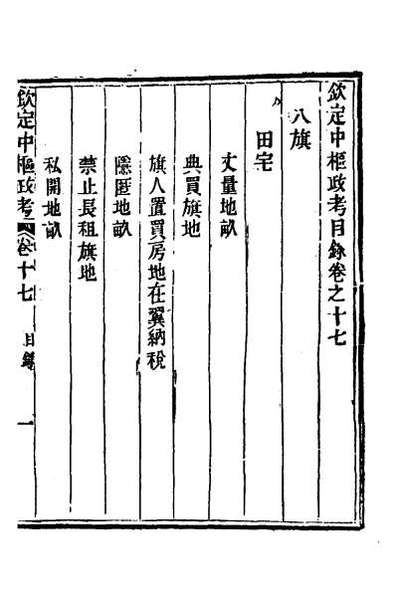 欽定中樞政考目錄卷之十七
八旗
田宅
丈量地畝
典買旗地
旗人置買房地在翼納稅
隱匿地畝
禁止長租旗地
私開地畝
欽定中樞政考 卷十七 目錄 一